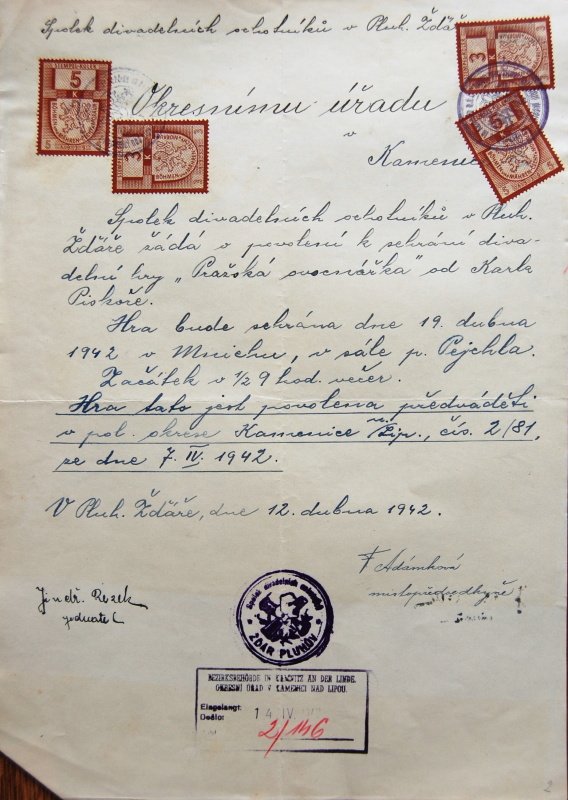 Spolek divadelních ochotníků v Pluh. Ždáře
Okresnímu úřadu
v
Kamenici
Spolek divadelních ochotníků v Pluh.
Ždáře žádá o povolení k sehrání diva-
delní hry „Pražská ovocnářka" od Karla
Piskoře.
Hra bude sehrána dne 19. dubna
1942 v Mnichu, v sále p. Pejchla.
Začátek v ½ 9 hod. večer.
Hra tato jest povolena předváděti
v pol. okrese Kamenice n. Lip., čís. 2/81,
ze dne 7. IV. 1942.
V Pluh. Ždáře, dne 12. dubna 1942.
F Adámková
místopředsedkyně
Jindř. Rezek
jednatel
Spolek divadelních ochotníků
ŽDÁR PLUHŮV
BEZIRKSBEHÖRDE IN KAMNITZ AN DER LINDE.
OKRESNÍ ÚŘAD V KAMENICI NAD LIPOU.
Eingelangt:
Došlo: 14 IV
2/146
5 K
3 K
3 K
5 K
BÖHMEN
2